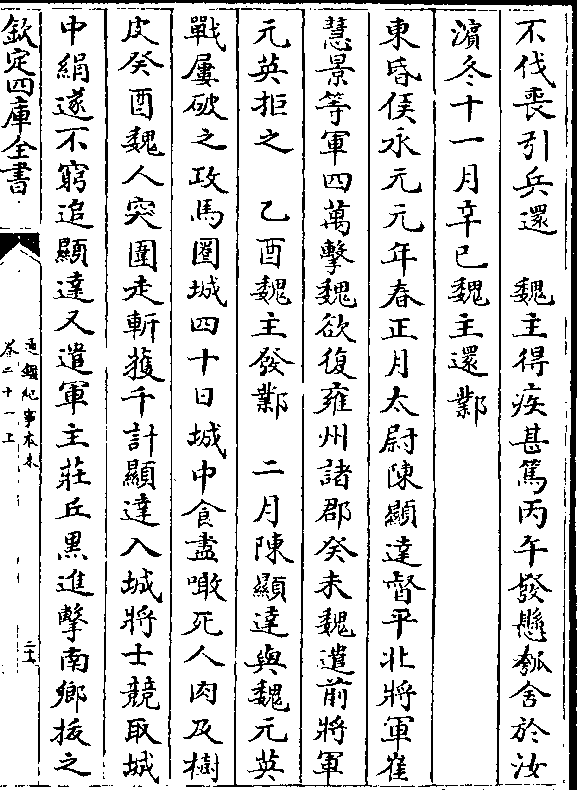 不伐喪引兵還　魏主得疾甚篤丙午發懸瓠舍於汝
濵冬十一月辛巳魏主還鄴
東昏侯永元元年春正月太尉陳顯達督平北將軍崔
慧景等軍四萬擊魏欲復雍州諸郡癸未魏遣前將軍
元英拒之　乙酉魏主發鄴　二月陳顯達與魏元英
戰屢破之攻馬圈城四十日城中食盡噉死人肉及樹
皮癸酉魏人突圍走斬獲千計顯達入城將士競取城
中絹遂不窮追顯達又遣軍主莊丘黑進擊南鄉拔之
欽定四庫全書
通鑑紀事本末
卷二十一上